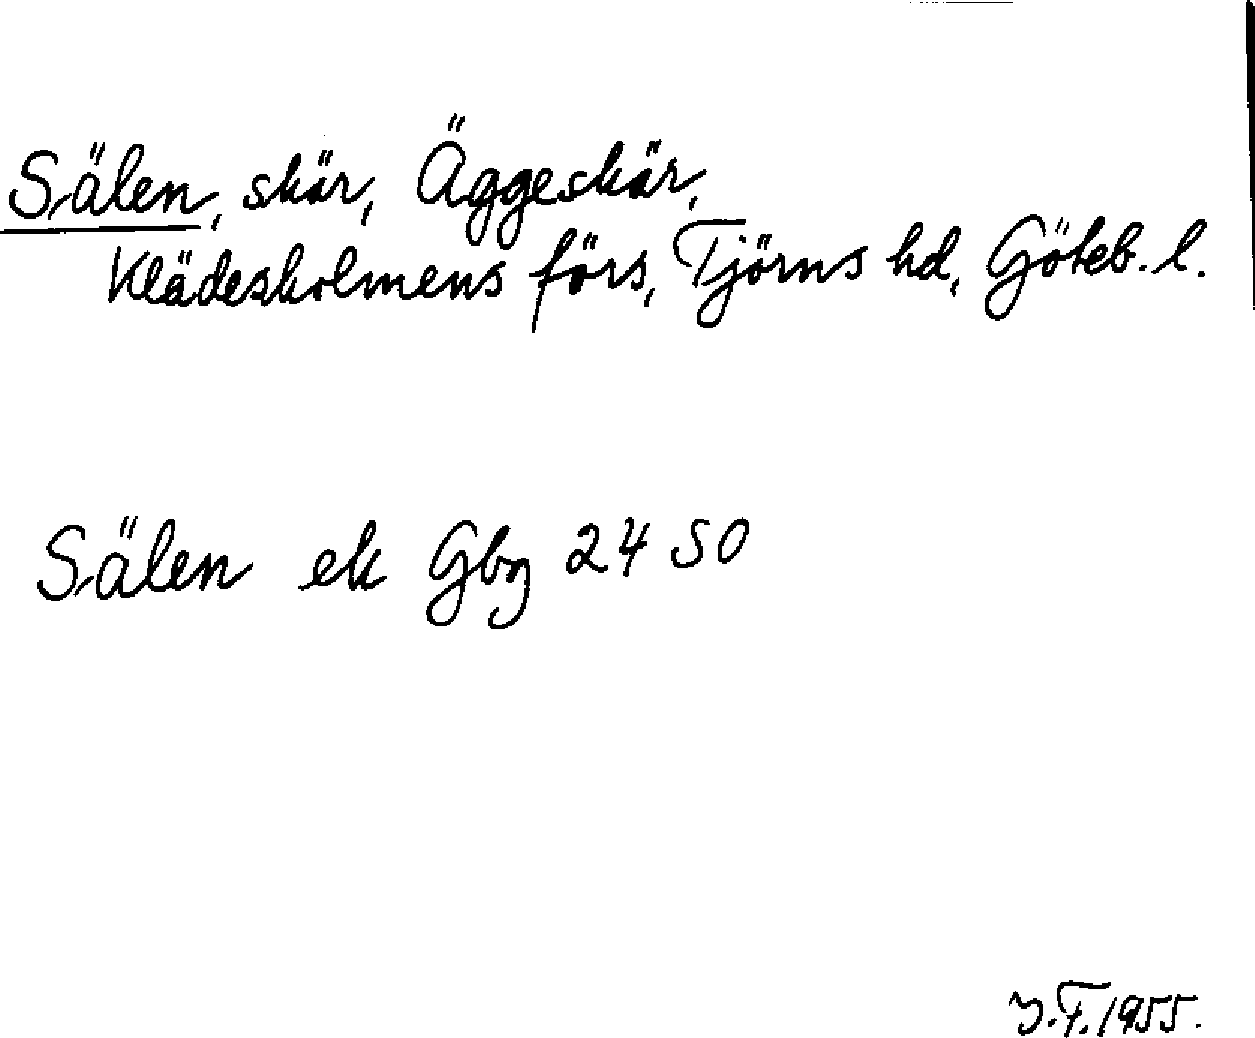 Sälen, skär, Äggeskär,
Klädesholmens förs, Tjörns hd, Göteb. l.
Sälen ek Gbg 24 SO
F. 1955.